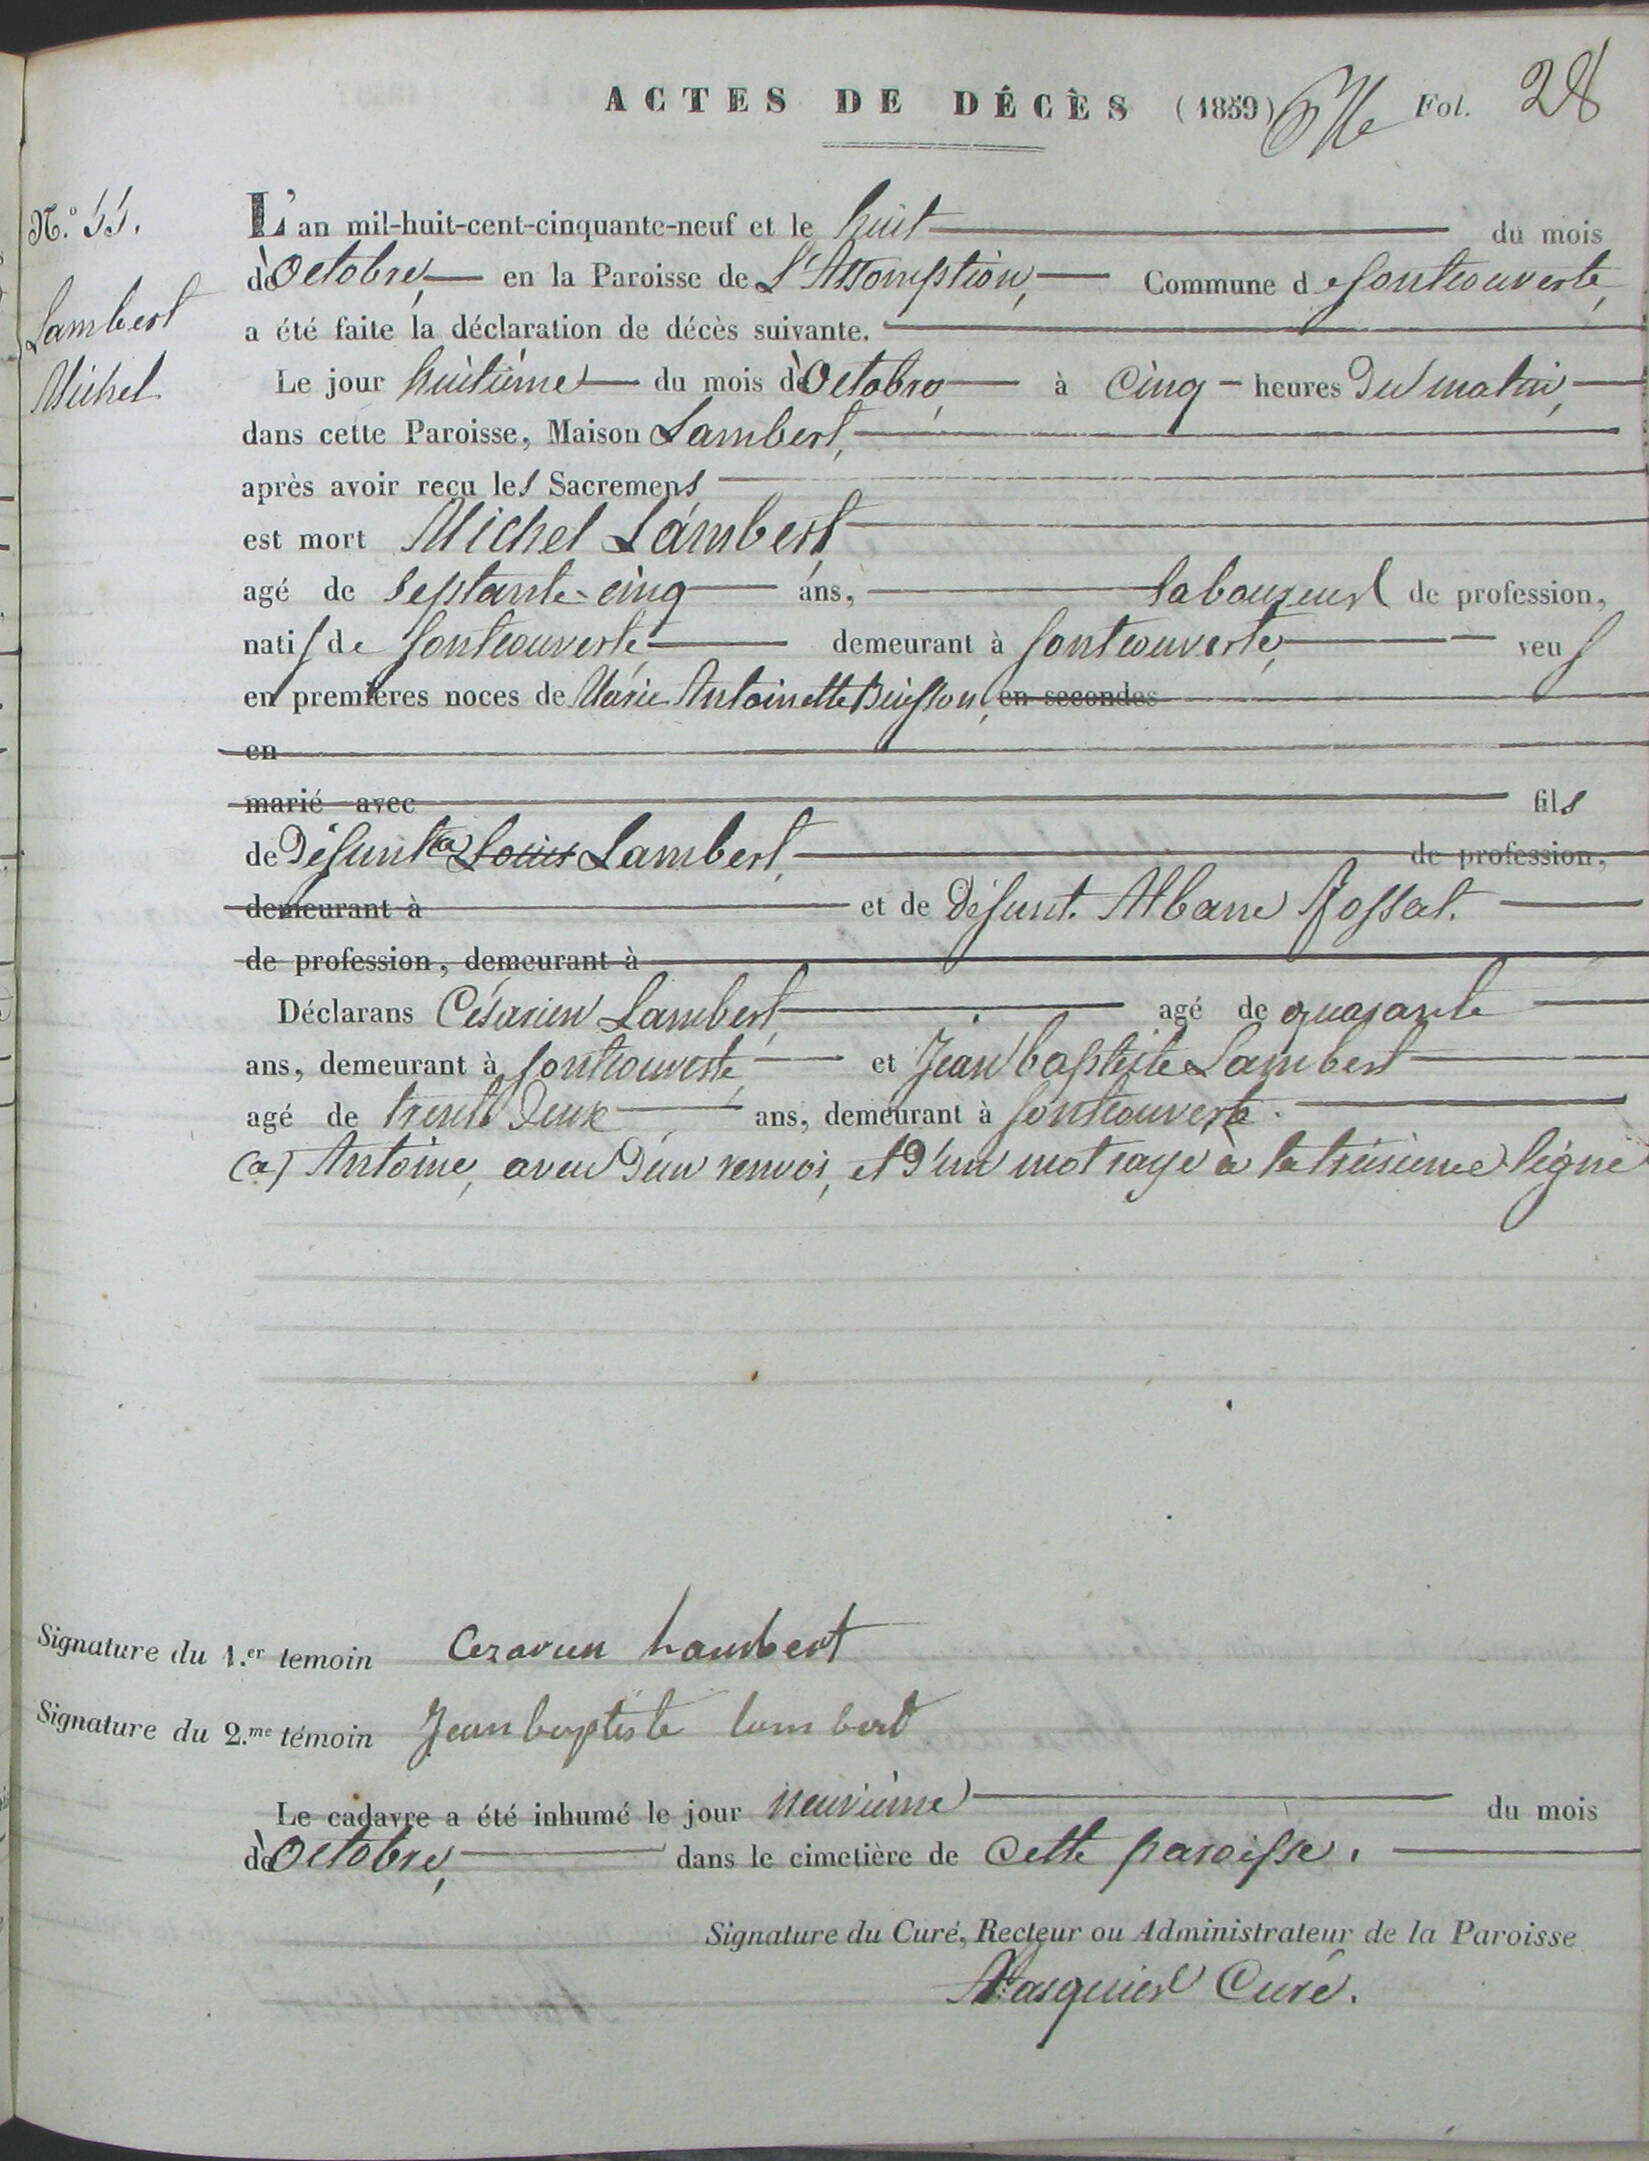 ACTES DE DÉCÈS (1859) Fol. 28
N.º 55.
L'an mil-huit-cent-cinquante-neuf et le huit du mois
Lambert
d'Octobre, en la Paroisse de L'Assomption, Commune de Fontcouverte,
a été faite la déclaration de décès suivante.
Michel
Le jour huitième du mois d'Octobre, à cinq heures du matin,
dans cette Paroisse, Maison Lambert,
après avoir reçu les Sacremens
est mort Michel Lambert,
agé de septante-cinq ans, laboureur de profession,
natif de Fontcouverte demeurant à Fontcouverte, veuf
en premières noces de Marie Antoinette Buisson, en secondes
en
marié avec fils
de défunt (a) Louis Lambert, de profession,
demeurant à et de défunt. Albane Rossat.
de profession, demeurant à
Déclarans Césarien Lambert, agé de quarante
ans, demeurant à Fontcouverte, et Jean baptiste Lambert
agé de trente deux ans, demeurant à Fontcouverte.
(a) Antoine, aveu d'un renvoi, et d'un mot rayé à la treisieme ligne
Signature du 1.er temoin Cezarien Lambert
Signature du 2.me témoin Jean baptiste lambert
Le cadavre a été inhumé le jour neuvième du mois
d'Octobre, dans le cimetière de cette paroisse.
Signature du Curé, Recteur ou Administrateur de la Paroisse
Pasquier Curé.